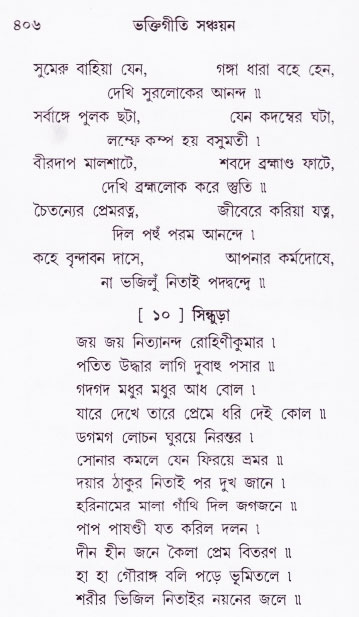 ৪০৬ ভক্তিগীতি সঞ্চয়ন
সুমেরু বাহিয়া যেন, গঙ্গা ধারা বহে হেন,
দেখি সুরলোকের আনন্দ ॥
সর্বাঙ্গে পুলক ছটা, যেন কদম্বের ঘটা,
লম্ফে কম্প হয় বসুমতী ।
বীরদাপ মালশাটে, শবদে ব্রহ্মাণ্ড ফাটে,
দেখি ব্রহ্মলোক করে স্তুতি ॥
চৈতন্যের প্রেমরত্ন, জীবেরে করিয়া যত্ন,
দিল পহুঁ পরম আনন্দে ।
কহে বৃন্দাবন দাসে, আপনার কর্মদোষে,
না ভজিলুঁ নিতাই পদদ্বন্দ্বে ॥
[ ১০ ] সিন্ধুড়া
জয় জয় নিত্যানন্দ রোহিণীকুমার ।
পতিত উদ্ধার লাগি দুবাহু পসার ॥
গদগদ মধুর মধুর আধ বোল ।
যারে দেখে তারে প্রেমে ধরি দেই কোল ॥
ডগমগ লোচন ঘুরয়ে নিরন্তর ।
সোনার কমলে যেন ফিরয়ে ভ্রমর ॥
দয়ার ঠাকুর নিতাই পর দুখ জানে ।
হরিনামের মালা গাঁথি দিল জগজনে ॥
পাপ পাষণ্ডী যত করিল দলন ।
দীন হীন জনে কৈলা প্রেম বিতরণ ॥
হা হা গৌরাঙ্গ বলি পড়ে ভূমিতলে ।
শরীর ভিজিল নিতাইর নয়নের জলে ॥